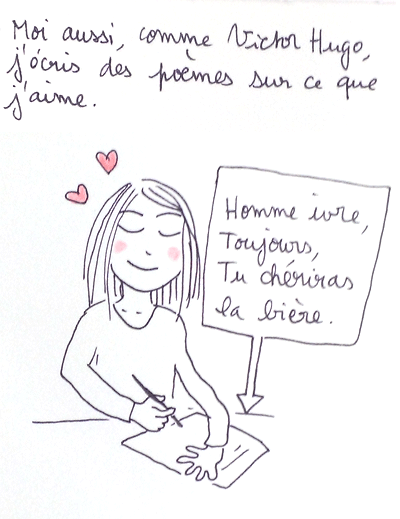 Moi aussi, comme Victor Hugo,
j'écris des poèmes sur ce que
j'aime.
Homme ivre,
Toujours,
Tu chériras
la bière.